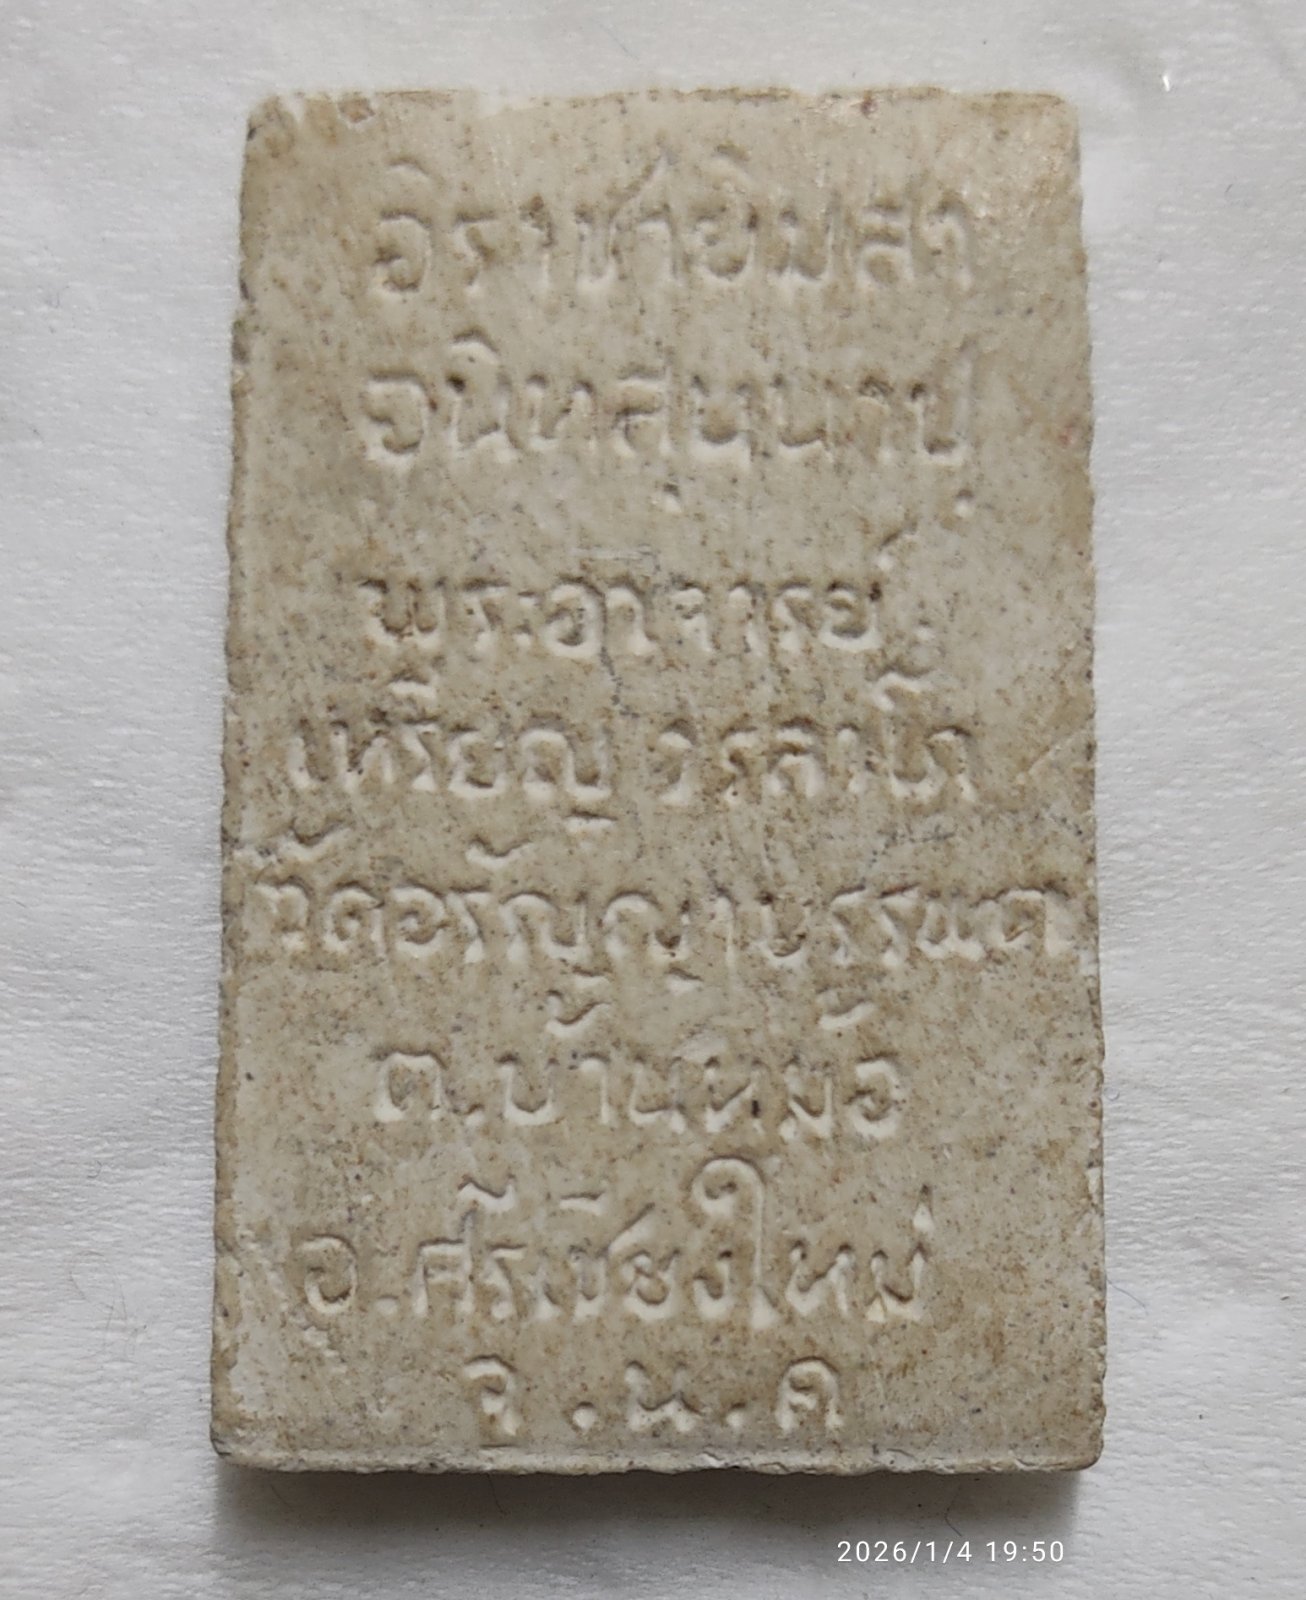 อิราชายิมสา
อนิทสฺนนาปฺ
พระอาจารย์
เหรียญ วรลาโภ
วัดอรัญญฺบรรพต
ต.บ้านหม้อ
อ.ศรีเชียงใหม่
จ.น.ค
2026/1/4 19:50